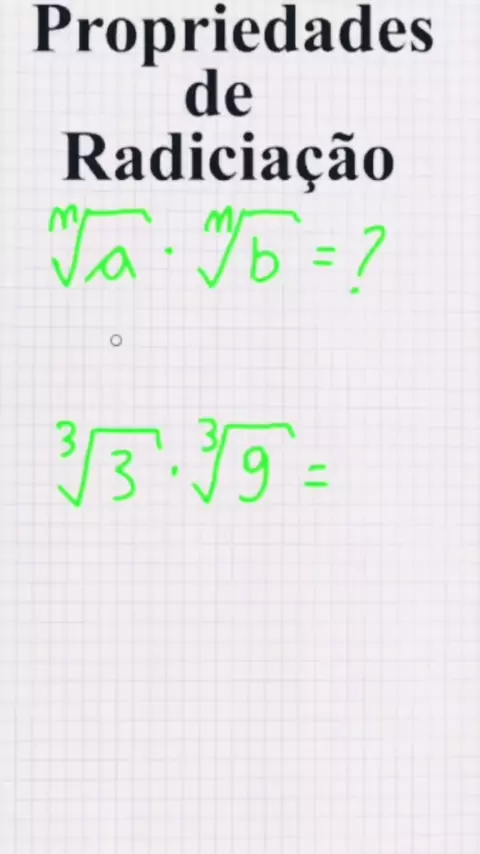 Propriedades
de
Radiciação
ᵐ√a · ᵐ√b = ?
³√3 · ³√9 =